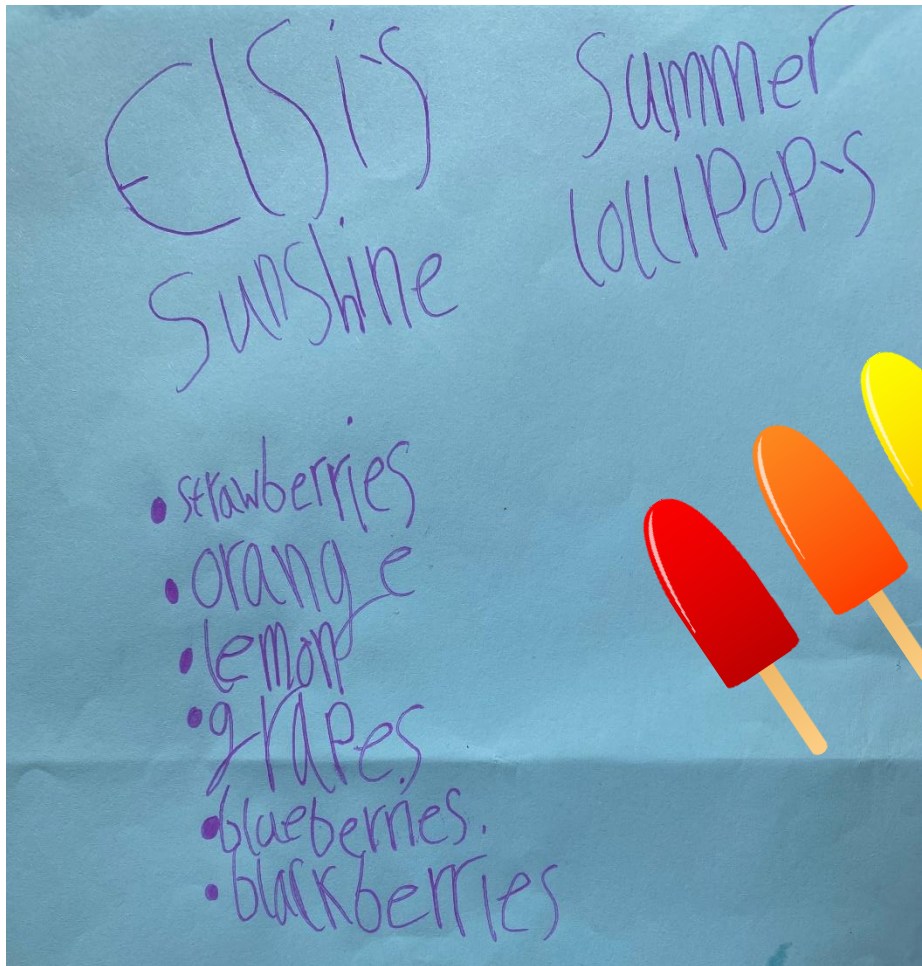 Elsi's
Sunshine
Summer
lollipop's
• strawberries
• orange
• lemon
• grapes.
• blueberries.
• blackberries